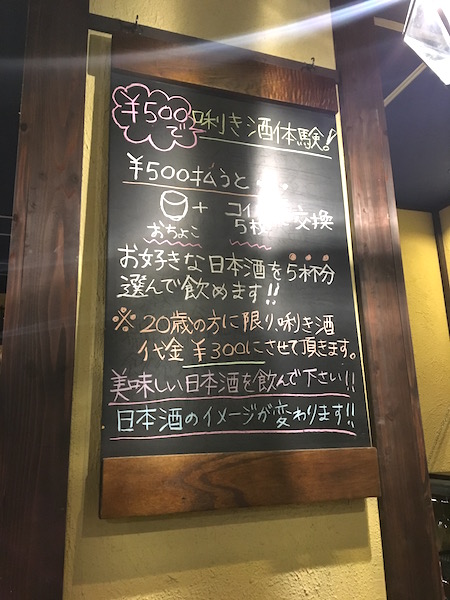 ¥500で
唎き酒体験!
¥500払うと...
+ コイン 5枚 交換
おちょこ
お好きな日本酒を5杯分
選んで飲めます!!
※20歳の方に限り、唎き酒
代金¥300にさせて頂きます。
美味しい日本酒を飲んで下さい!!
日本酒のイメージが変わります!!